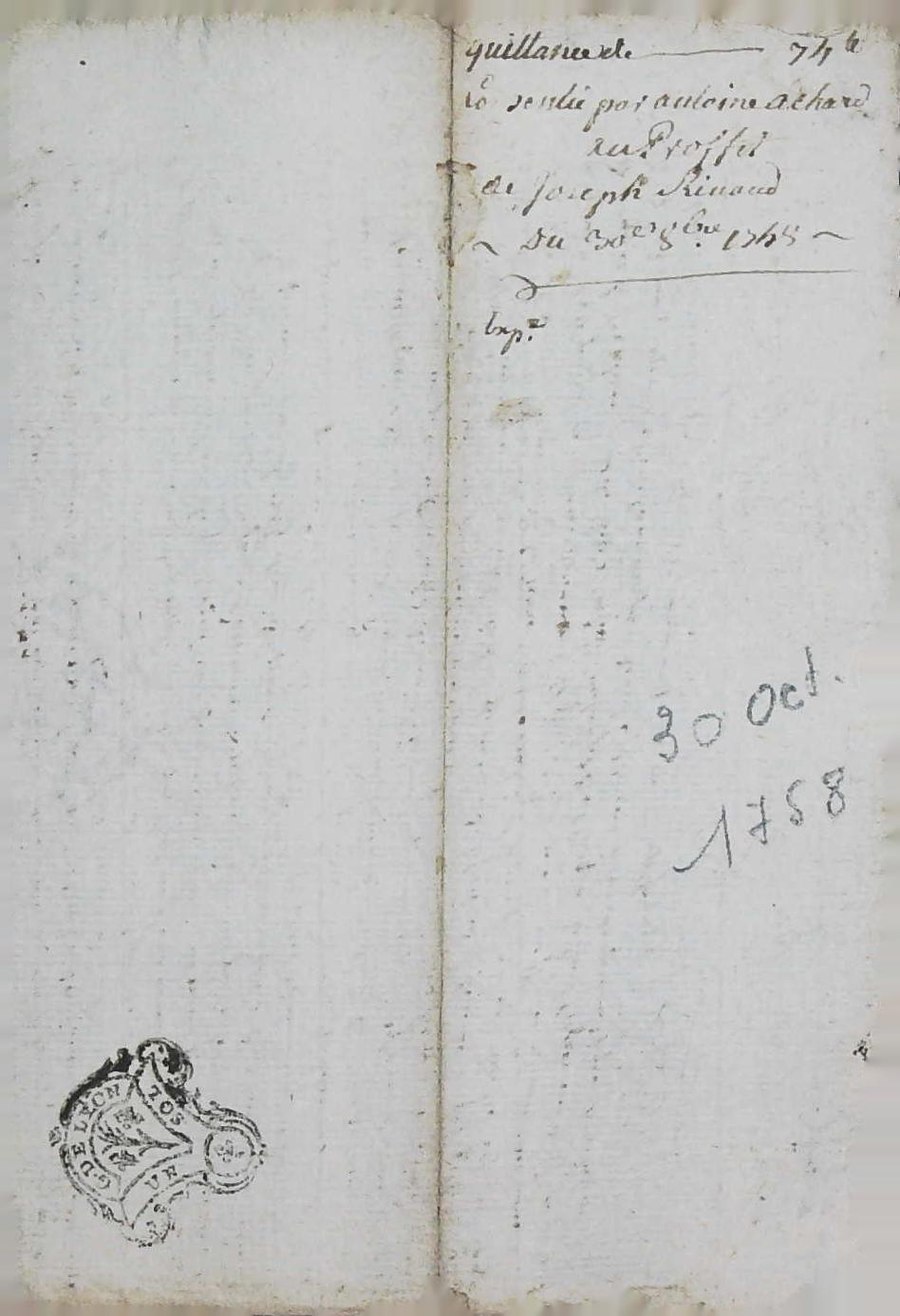 quittance de 74 lt
Consentie par antoine achard
au Proffit
de Joseph Rinaud
~ Du 30e 8bre 1758 ~
Exp.e
30 oct.
1758
G. DE LEON
SOL